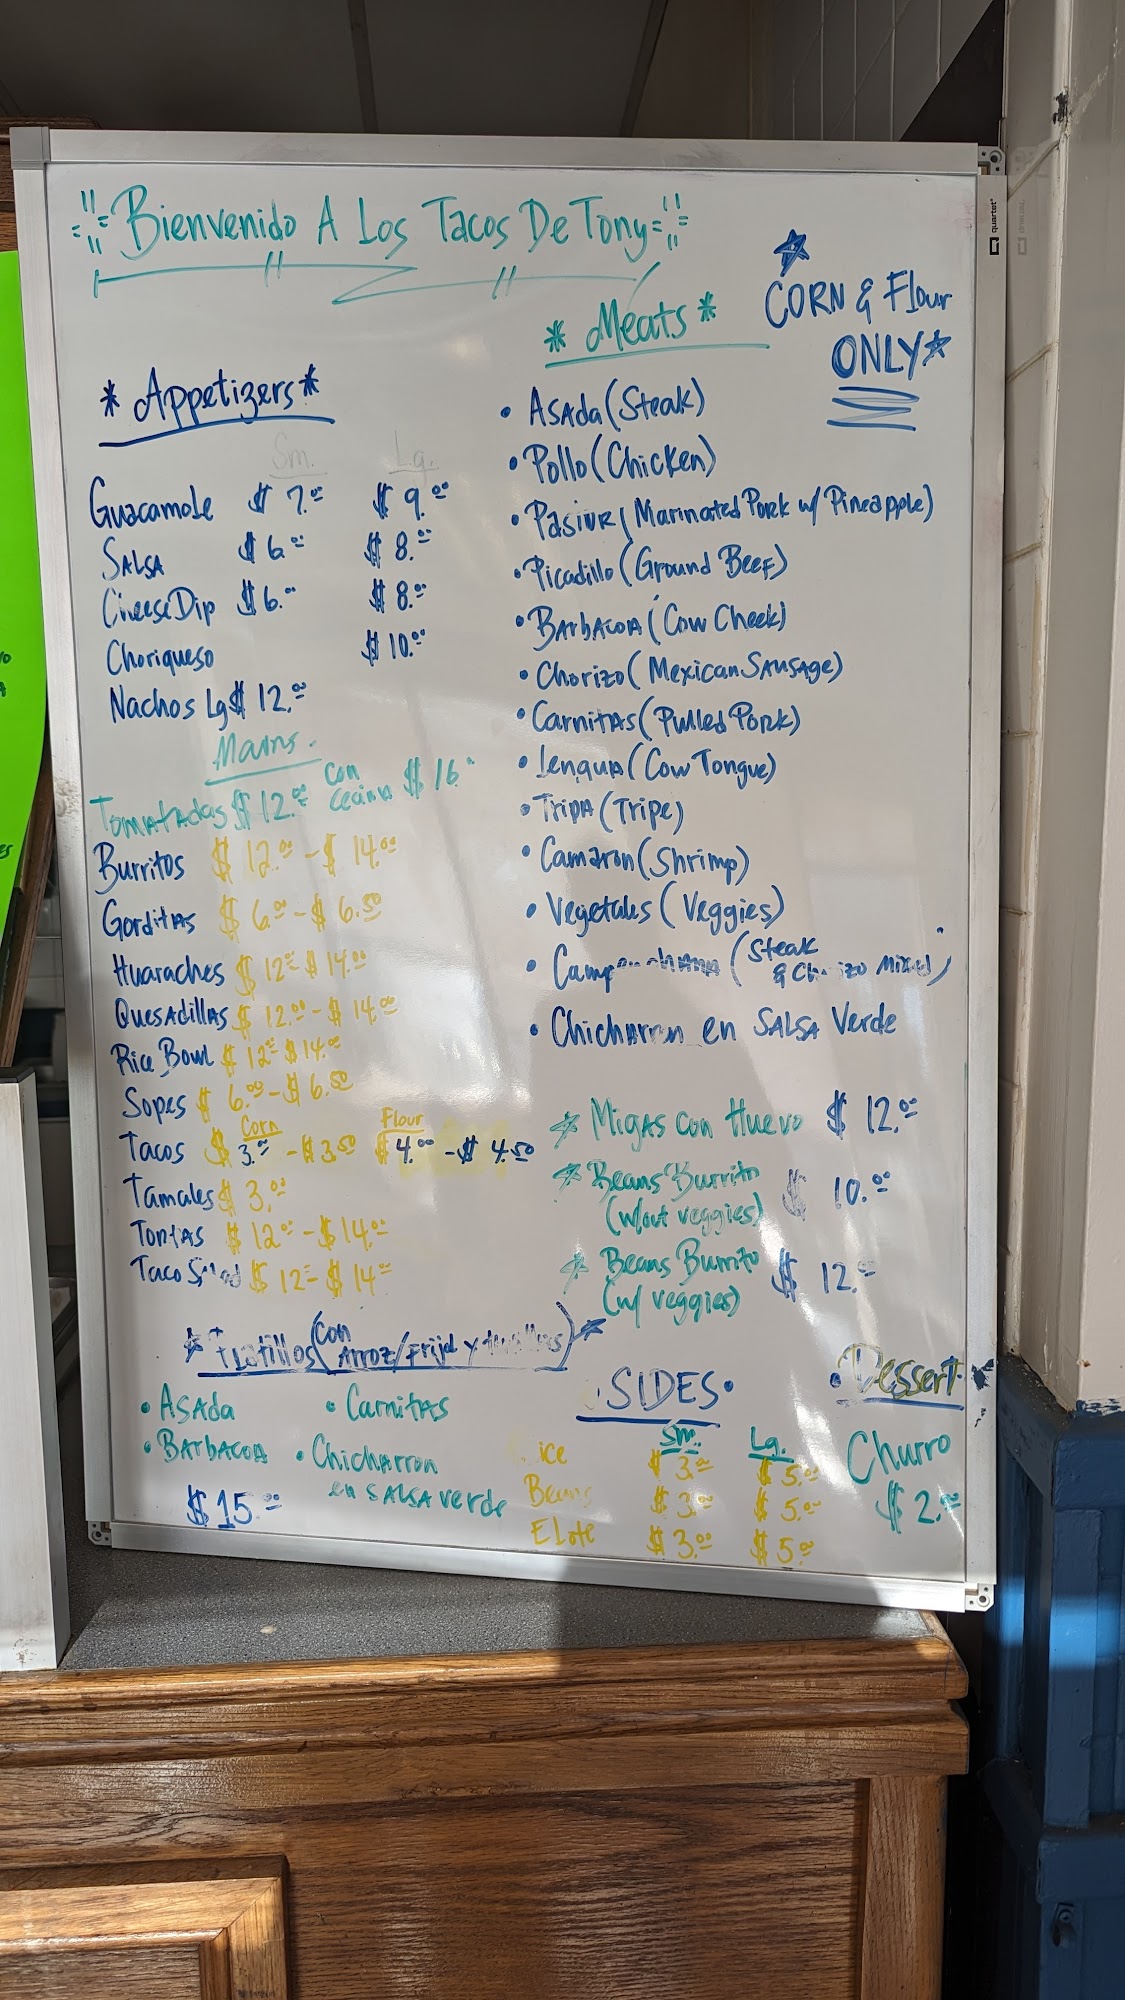 Bienvenido A Los Tacos De Tony
CORN & Flour
ONLY
* Appetizers *
Sm. Lg.
Guacamole $ 7.00 $ 9.00
SALSA $ 6.00 $ 8.00
CheeseDip $ 6.00 $ 8.00
Choriqueso $ 10.00
Nachos Lg $ 12.00
Mains.
Tomatadas $ 12.00 con cecina $ 16.
Burritos $ 12.00 - $ 14.00
Gorditas $ 6.00 - $ 6.50
Huaraches $ 12.00 - $ 14.00
Quesadillas $ 12.00 - $ 14.00
Rice Bowl $ 12.00 $ 14.00
Sopes $ 6.00 - $ 6.50
Corn Flour
Tacos $ 3.00 - $ 3.50 $ 4.00 - $ 4.50
Tamales $ 3.00
Tortas $ 12.00 - $ 14.00
Taco $ 12.00 - $ 14.00
* Meats *
• Asada (Steak)
• Pollo (Chicken)
• (Marinated Pork w/ Pineapple)
• Picadillo (Ground Beef)
• Barbacoa (Cow Cheek)
• Chorizo (Mexican Sausage)
• Carnitas (Pulled Pork)
• Lengua (Cow Tongue)
• Tripa (Tripe)
• Camaron (Shrimp)
• Vegetales (Veggies)
• (Steak
& Mixed)
• Chicharron en SALSA Verde
* Migas con Huevo $ 12.00
* Beans Burrito
(w/out veggies) $ 10.00
* Beans Burrito
(w/ veggies) $ 12.00
* Platillos (con
Arroz/Frijol y) *
• Asada • Carnitas
• Barbacoa • Chicharron
en SALSA verde
$ 15.00
• SIDES •
Sm. Lg.
ice $ 3.00 $ 5.00
Beans $ 3.00 $ 5.00
Elote $ 3.00 $ 5.00
• Dessert •
Churro
$ 2.00
quartet